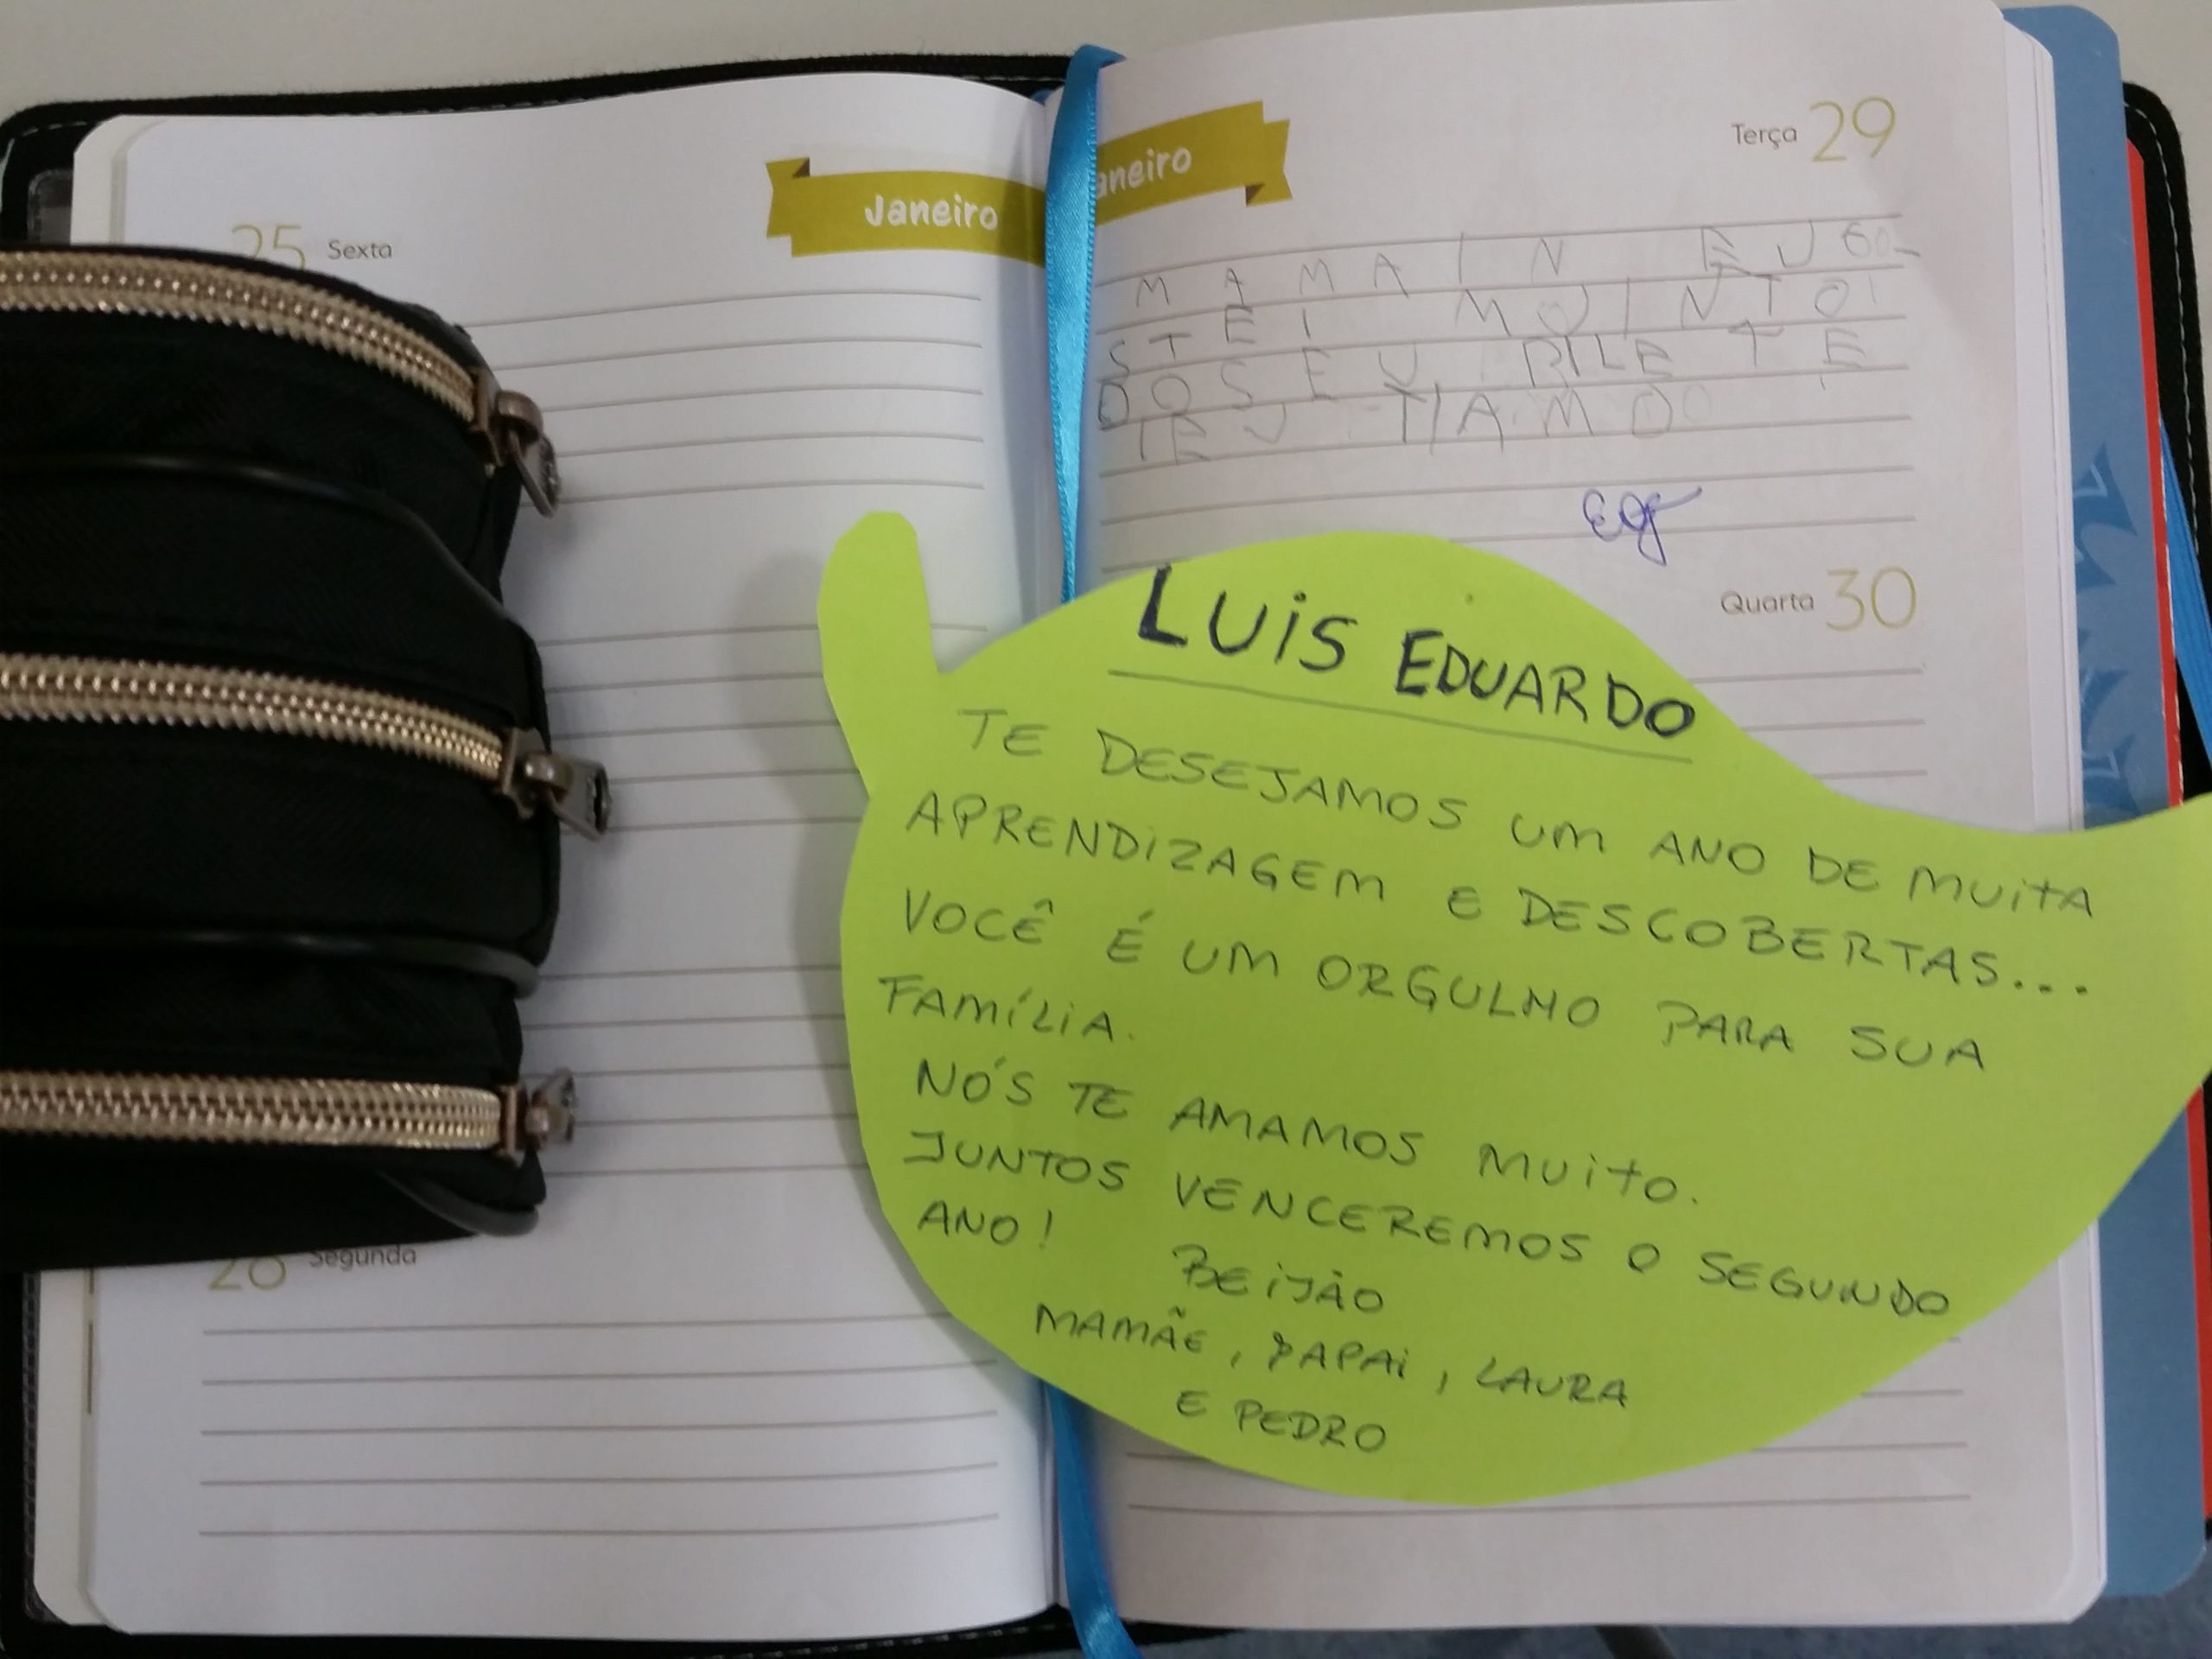 Janeiro
25 Sexta
28 Segunda
aneiro
Terça 29
MAMAIN EU GO-
STEI MUINTO
DO SEU BILETE
EU TIAMO
Quarta 30
LUIS EDUARDO
TE DESEJAMOS UM ANO DE MUITA
APRENDIZAGEM E DESCOBERTAS...
VOCÊ É UM ORGULHO PARA SUA
FAMÍLIA.
NÓS TE AMAMOS MUITO.
JUNTOS VENCEREMOS O SEGUNDO
ANO!
BEIJÃO
MAMÃE, PAPAI, LAURA
E PEDRO